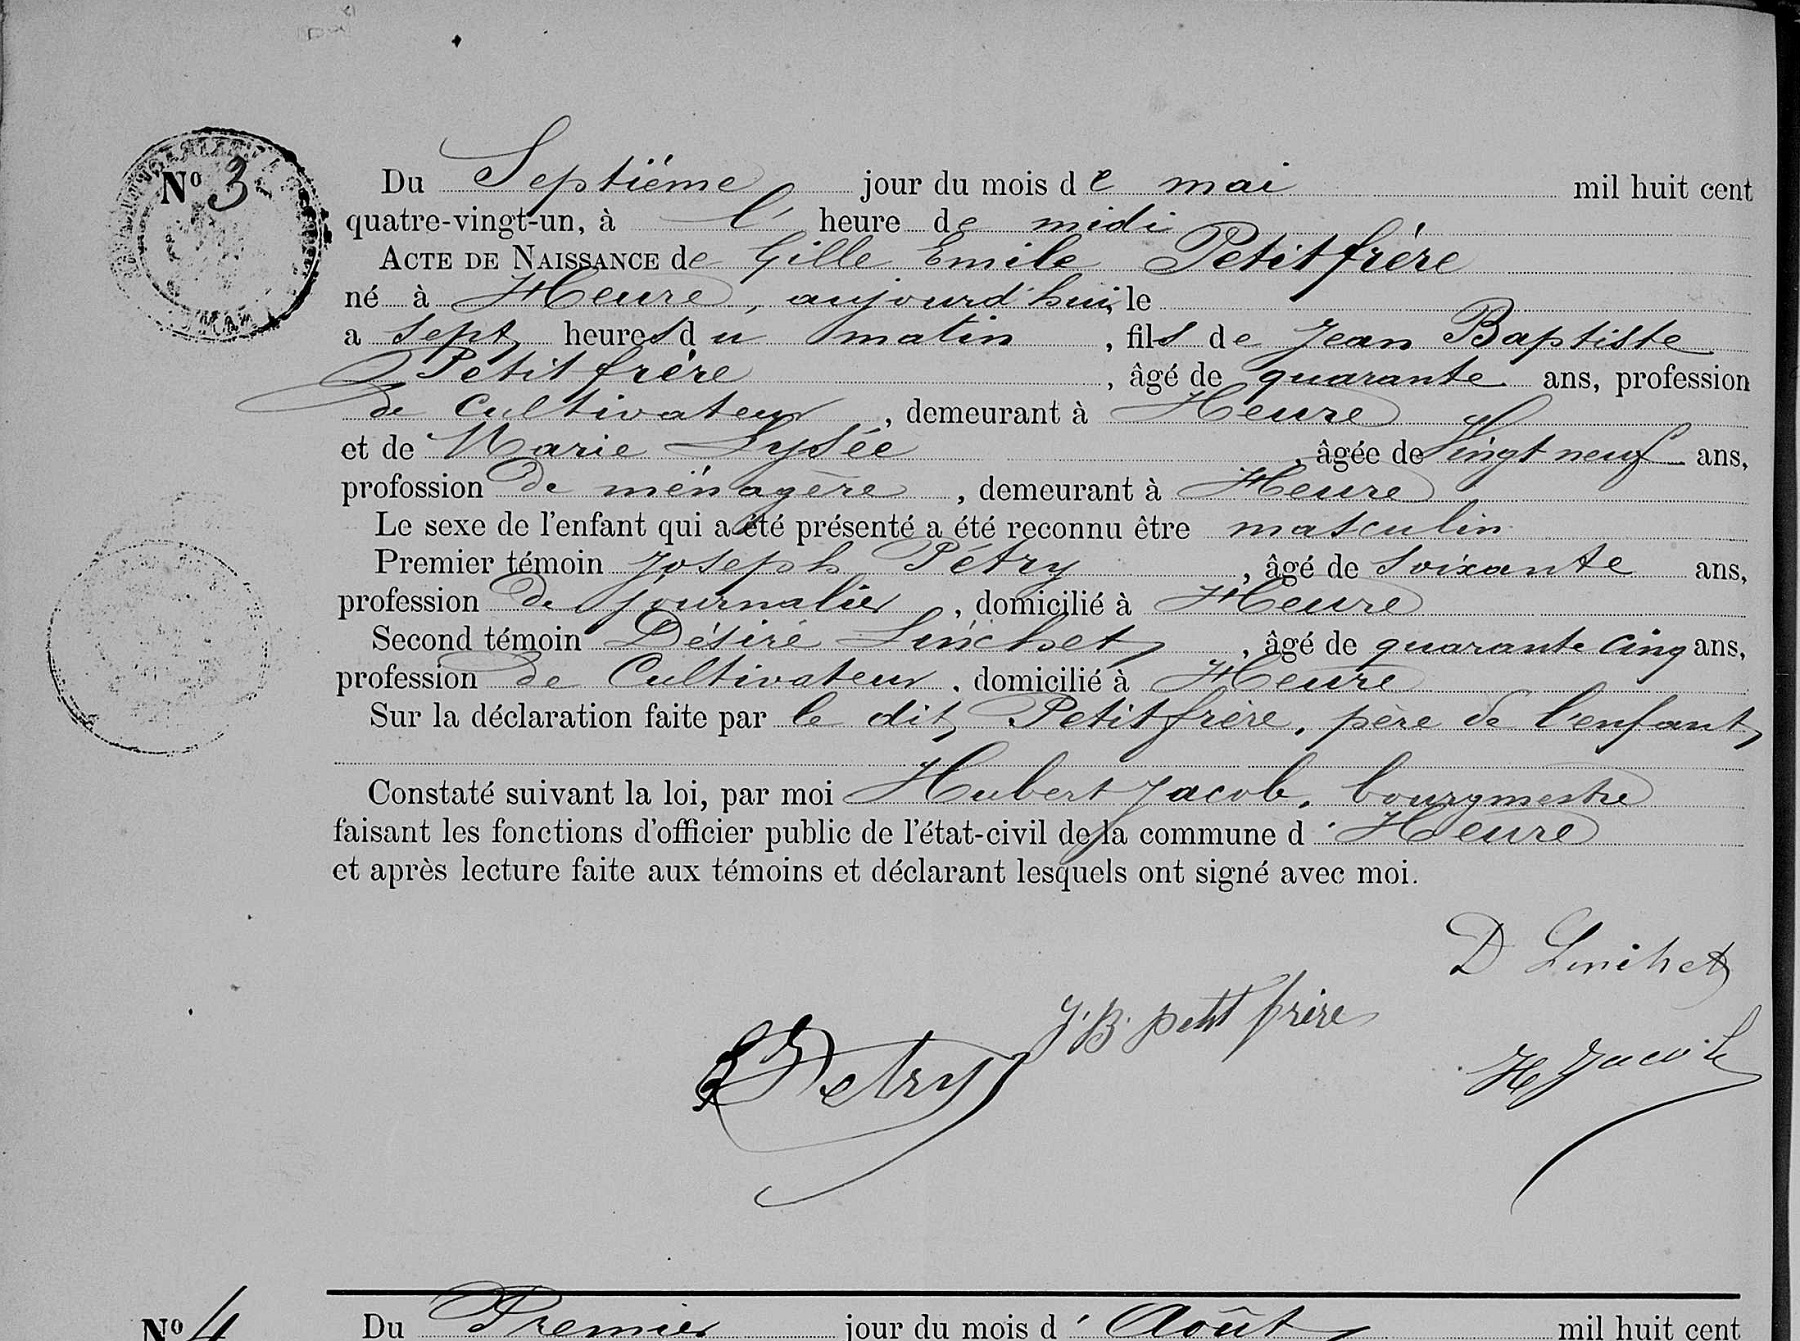 Nº 3
Du Septième jour du mois de mai mil huit cent
quatre-vingt-un, à l' heure de midi
ACTE DE NAISSANCE de Gille Emile Petitfrère
né à Heure, aujourd'hui, le
a sept heures du matin, fils de Jean Baptiste
Petitfrère, âgé de quarante ans, profession
de cultivateur, demeurant à Heure
et de Marie Lysée, âgée de Vingt neuf ans,
profossion de ménagère, demeurant à Heure
Le sexe de l'enfant qui a été présenté a été reconnu être masculin
Premier témoin Joseph Pétry, âgé de soixante ans,
profession de journalier, domicilié à Heure
Second témoin Désiré Linchet, âgé de quarante cinq ans,
profession de Cultivateur, domicilié à Heure
Sur la déclaration faite par le dit Petitfrère, père de l'enfant,
Constaté suivant la loi, par moi Hubert Jacob, bourgmestre
faisant les fonctions d'officier public de l'état-civil de la commune d'Heure
et après lecture faite aux témoins et déclarant lesquels ont signé avec moi.
D Linchet
J. B. petit frère
Petry
H Jacob
Nº 4
Du Premier jour du mois d'Août mil huit cent